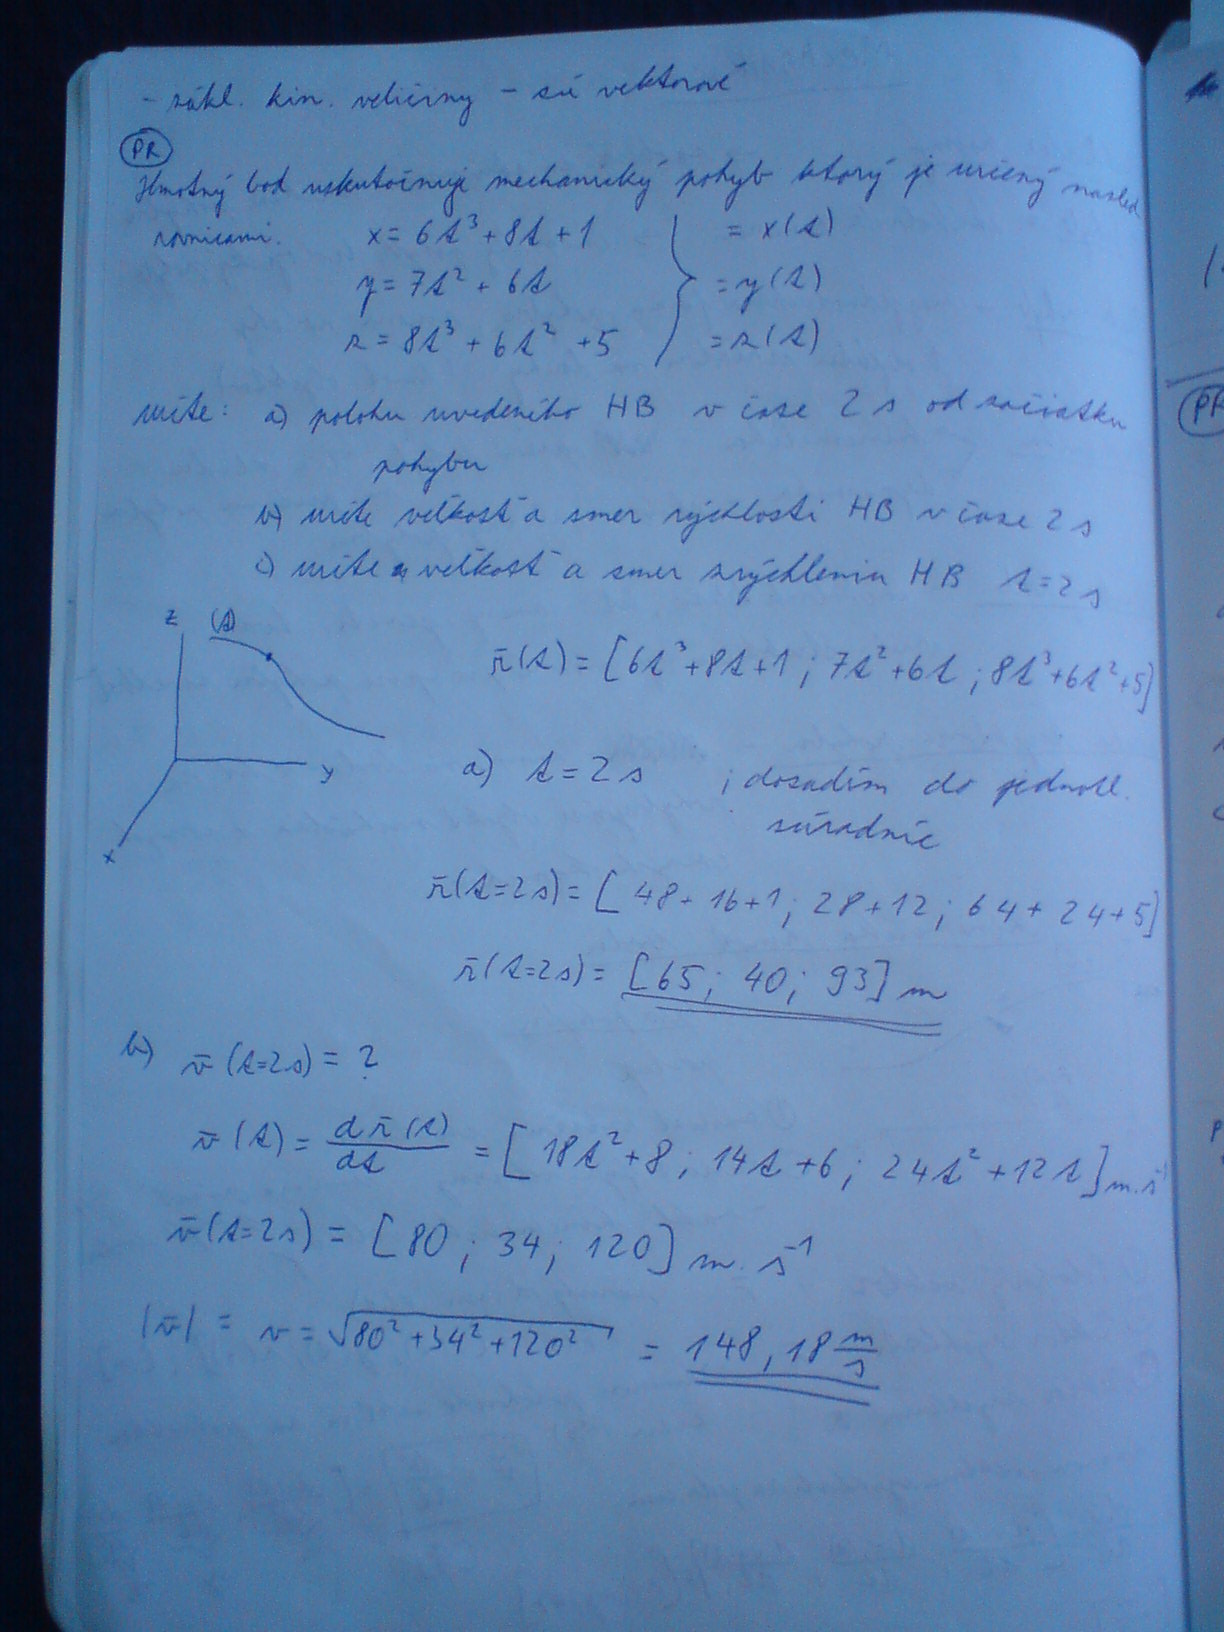 - zákl. kin. veličiny - sú vektorové
PR
Hmotný bod uskutočnuje mechanický pohyb ktorý je určený násled
rovnicami. x = 6t³ + 8t + 1 = x(t)
y = 7t² + 6t = y(t)
z = 8t³ + 6t² + 5 = z(t)
určte: a) polohu uvedeného HB v čase 2 s od začiatku
pohybu
b) určte veľkosť a smer rýchlosti HB v čase 2 s
c) určte veľkosť a smer zrýchleniu HB t = 2 s
z (t)
r̄(t) = [6t³+8t+1 ; 7t²+6t ; 8t³+6t²+5]
y
x
a) t = 2 s ; dosadím do jednotl.
súradníc
r̄(t=2s) = [48+16+1 ; 28+12 ; 64+24+5]
r̄(t=2s) = [65 ; 40 ; 93] m
b) v̄ (t=2s) = ?
v̄ (t) = dr̄(t)/dt = [18t²+8 ; 14t+6 ; 24t²+12t] m.s⁻¹
v̄ (t=2s) = [80 ; 34 ; 120] m. s⁻¹
|v̄| = v = √80²+34²+120² = 148,18 m/s
PR